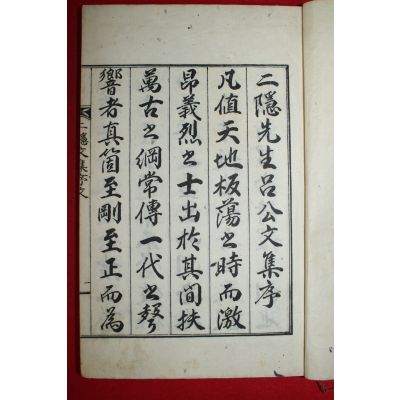 二隱先生呂公文集序
凡値天地板蕩之時而激
昂義烈之士出於其間扶
萬古之綱常傳一代之聲
響者真箇至剛至正而為
二隱文集序文 一